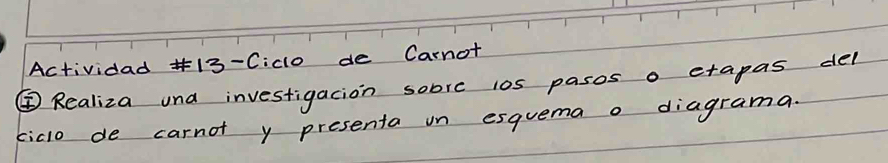 Actividad #13-Ciclo de Carnot
Ⓘ Realiza una investigación sobre los pasos o etapas del
ciclo de carnot y presenta un esquema o diagrama.